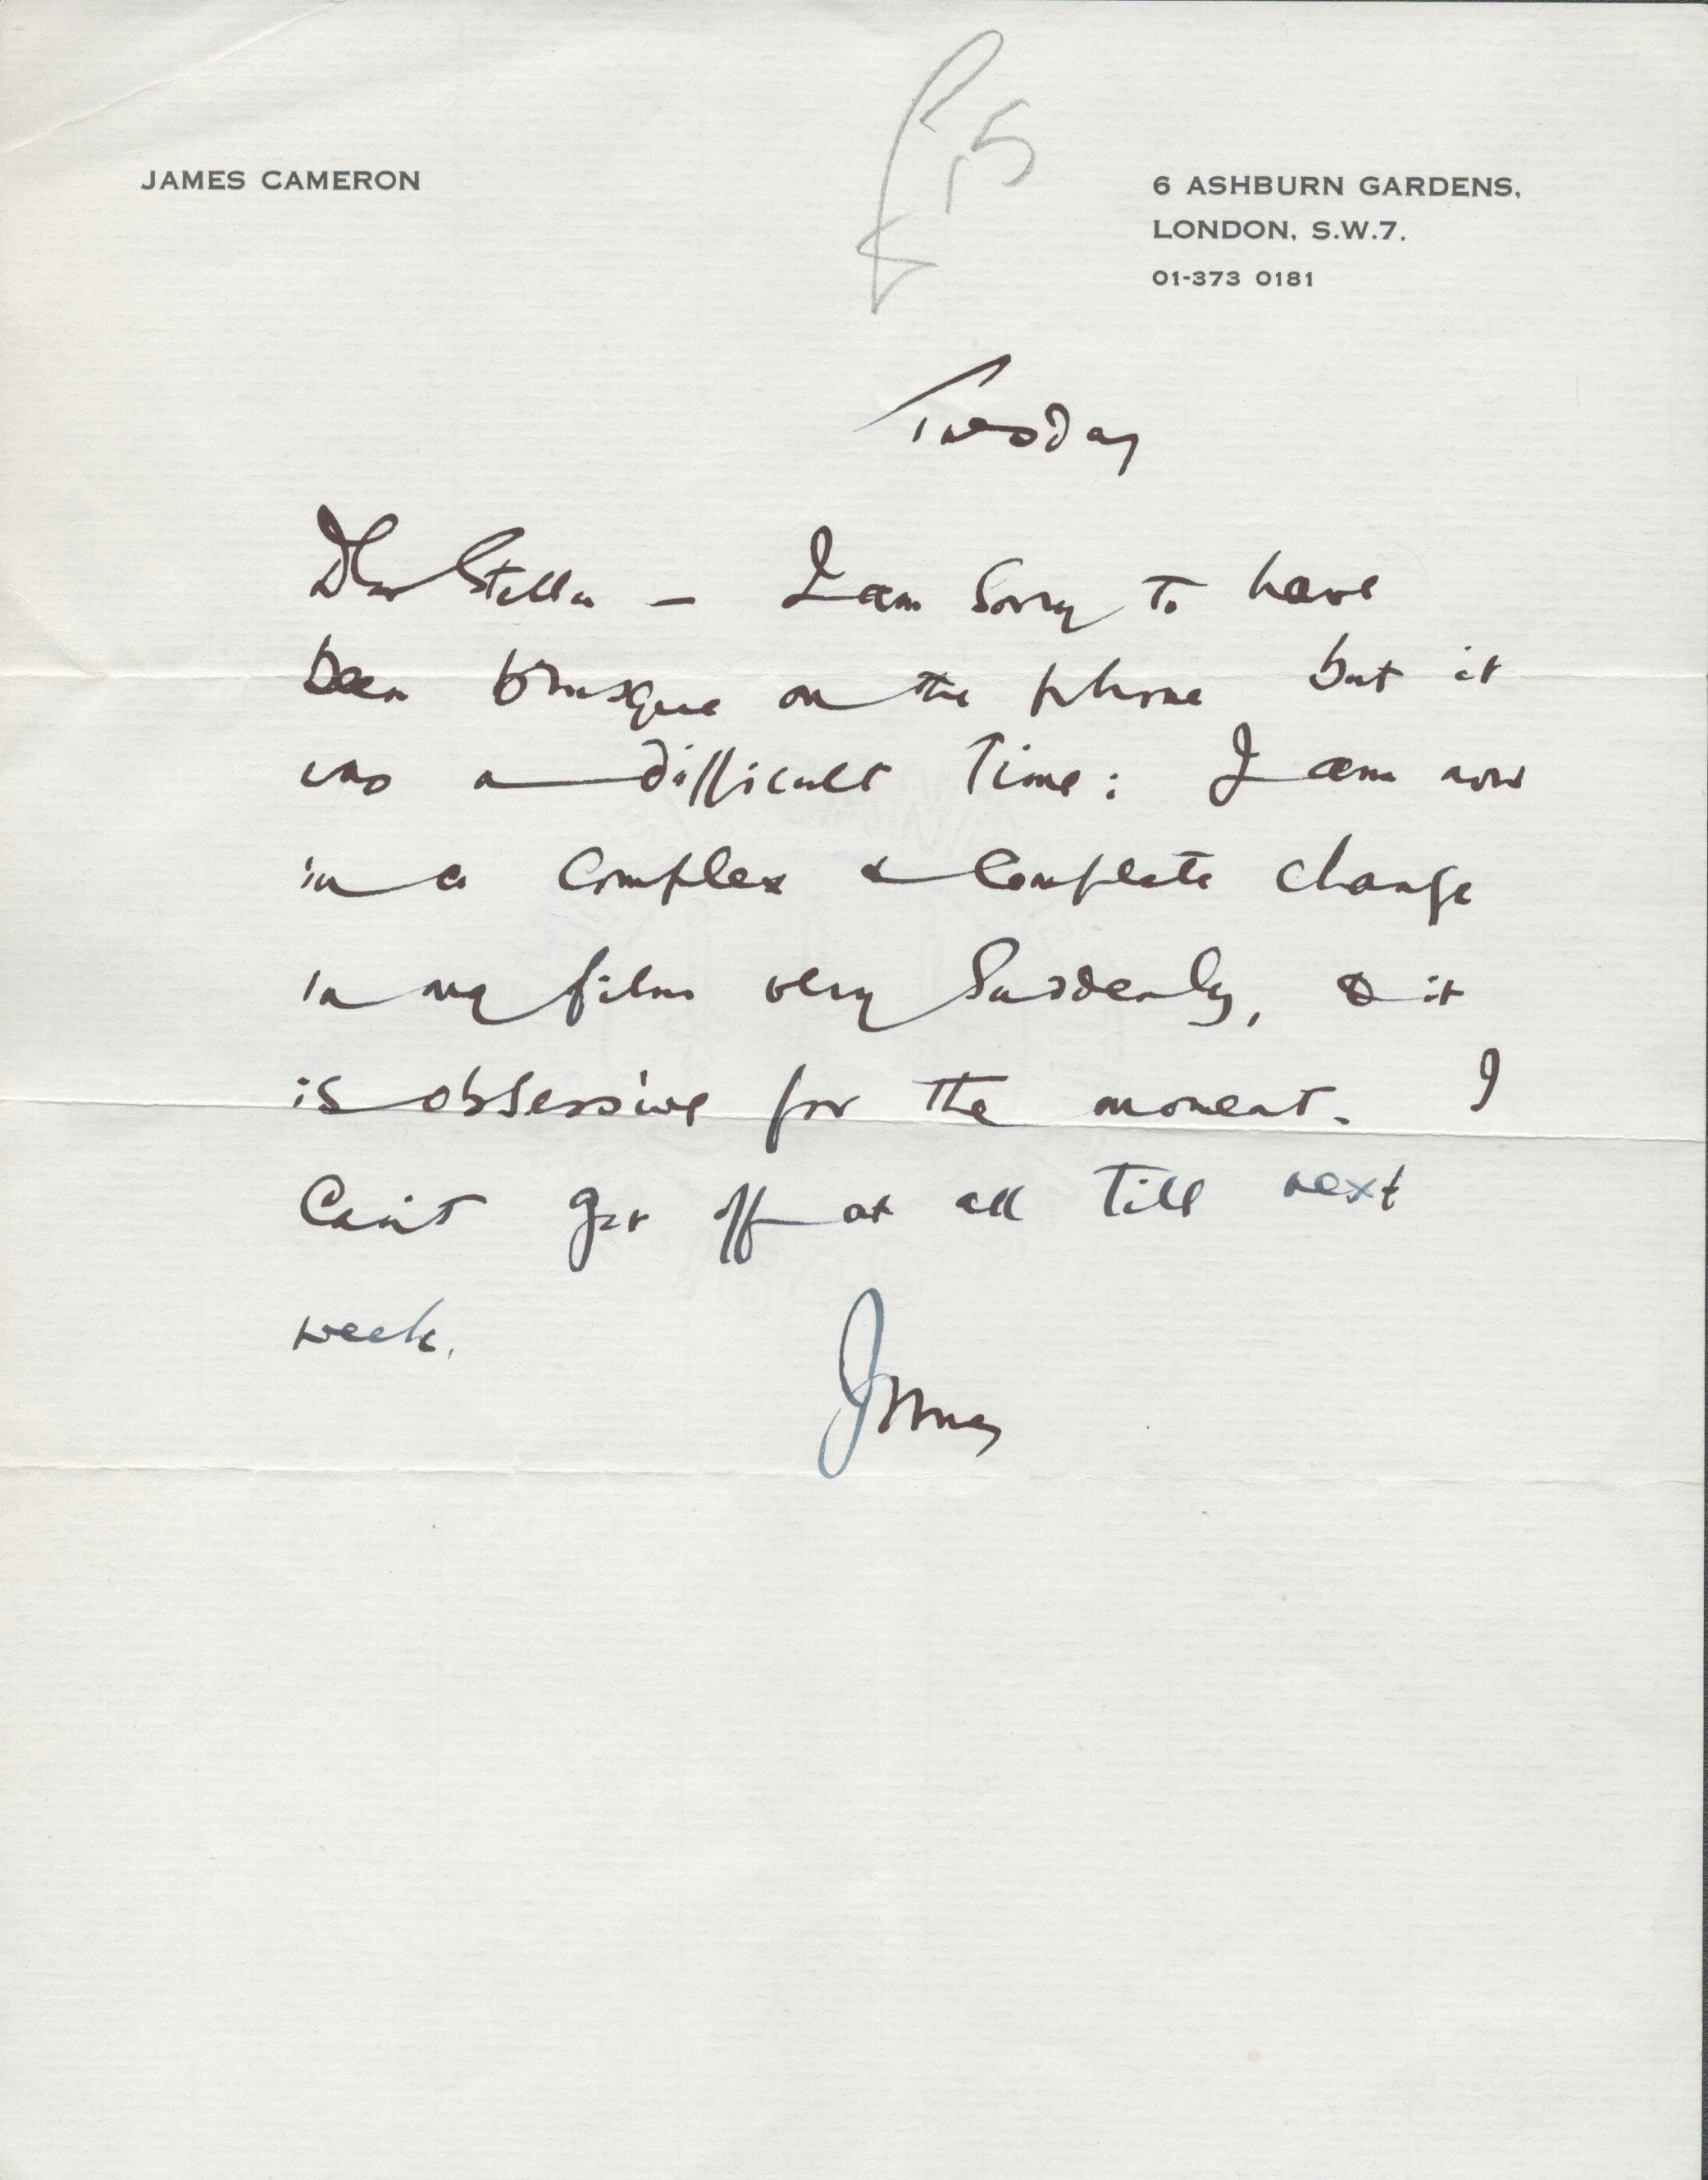 £15
JAMES CAMERON
6 ASHBURN GARDENS,
LONDON, S.W.7.
01-373 0181
Tuesday
Dear Stella – I am sorry to have
been brusque on the phone but it
was a difficult time: I am now
in a complex & complete change
in my film very suddenly, & it
is obsessive for the moment. I
can't get off at all till next
week.
James